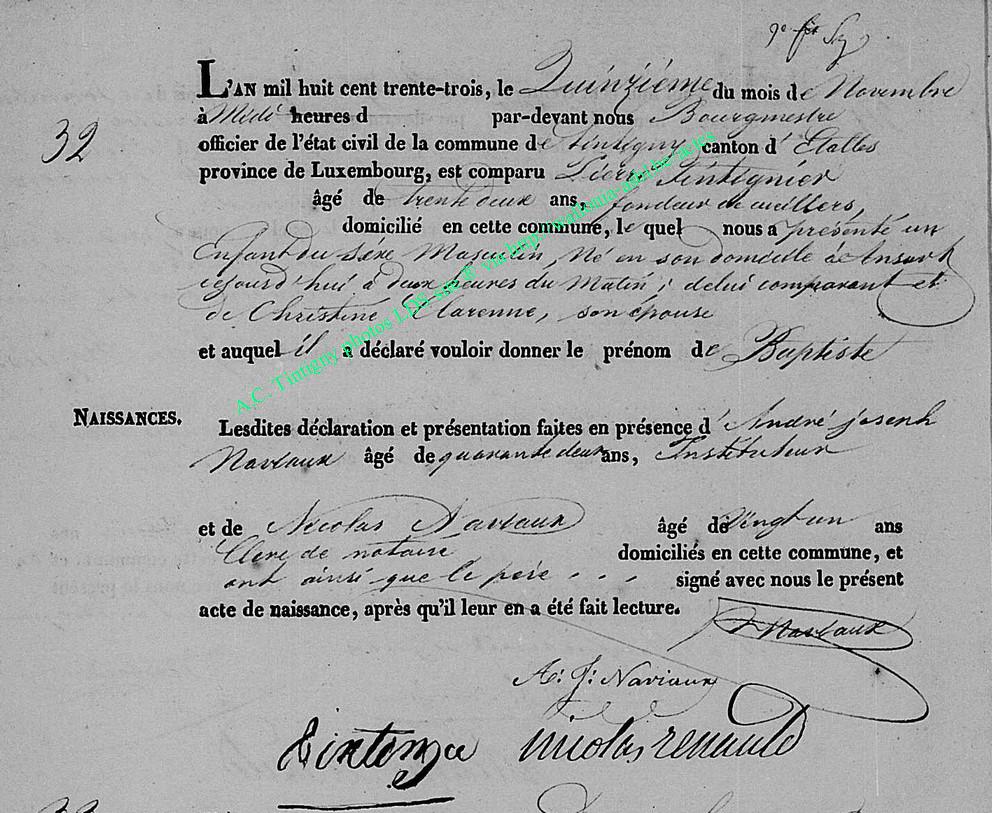 32
L'AN mil huit cent trente-trois, le Quinzième du mois de Novembre
à Midi heures d par-devant nous Bourgmestre
officier de l'état civil de la commune de Tintigny canton d'Etalles
province de Luxembourg, est comparu Pierre Tintignier
âgé de trente deux ans, fondeur de cuillers,
domicilié en cette commune, le quel nous a présenté un
Enfant du séxe Masculin, Né en son domicile à Ansart
cejourd'hui à deux heures du Matin, de lui comparant et
de Christine Clarenne, son épouse
et auquel il a déclaré vouloir donner le prénom de Baptiste
NAISSANCES.
Lesdites déclaration et présentation faites en présence d'André joseph
Naviaux âgé de quarante deux ans, Instituteur
et de Nicolas Naviaux âgé de Vingt un ans
Clerc de notaire domiciliés en cette commune, et
ont ainsi que le père signé avec nous le présent
acte de naissance, après qu'il leur en a été fait lecture.
Naviaux
A: J: Naviaux
nicolas renauld
33
A.C. Tintigny photos LDS, site ® via http://wallonia-asbl.be/actes